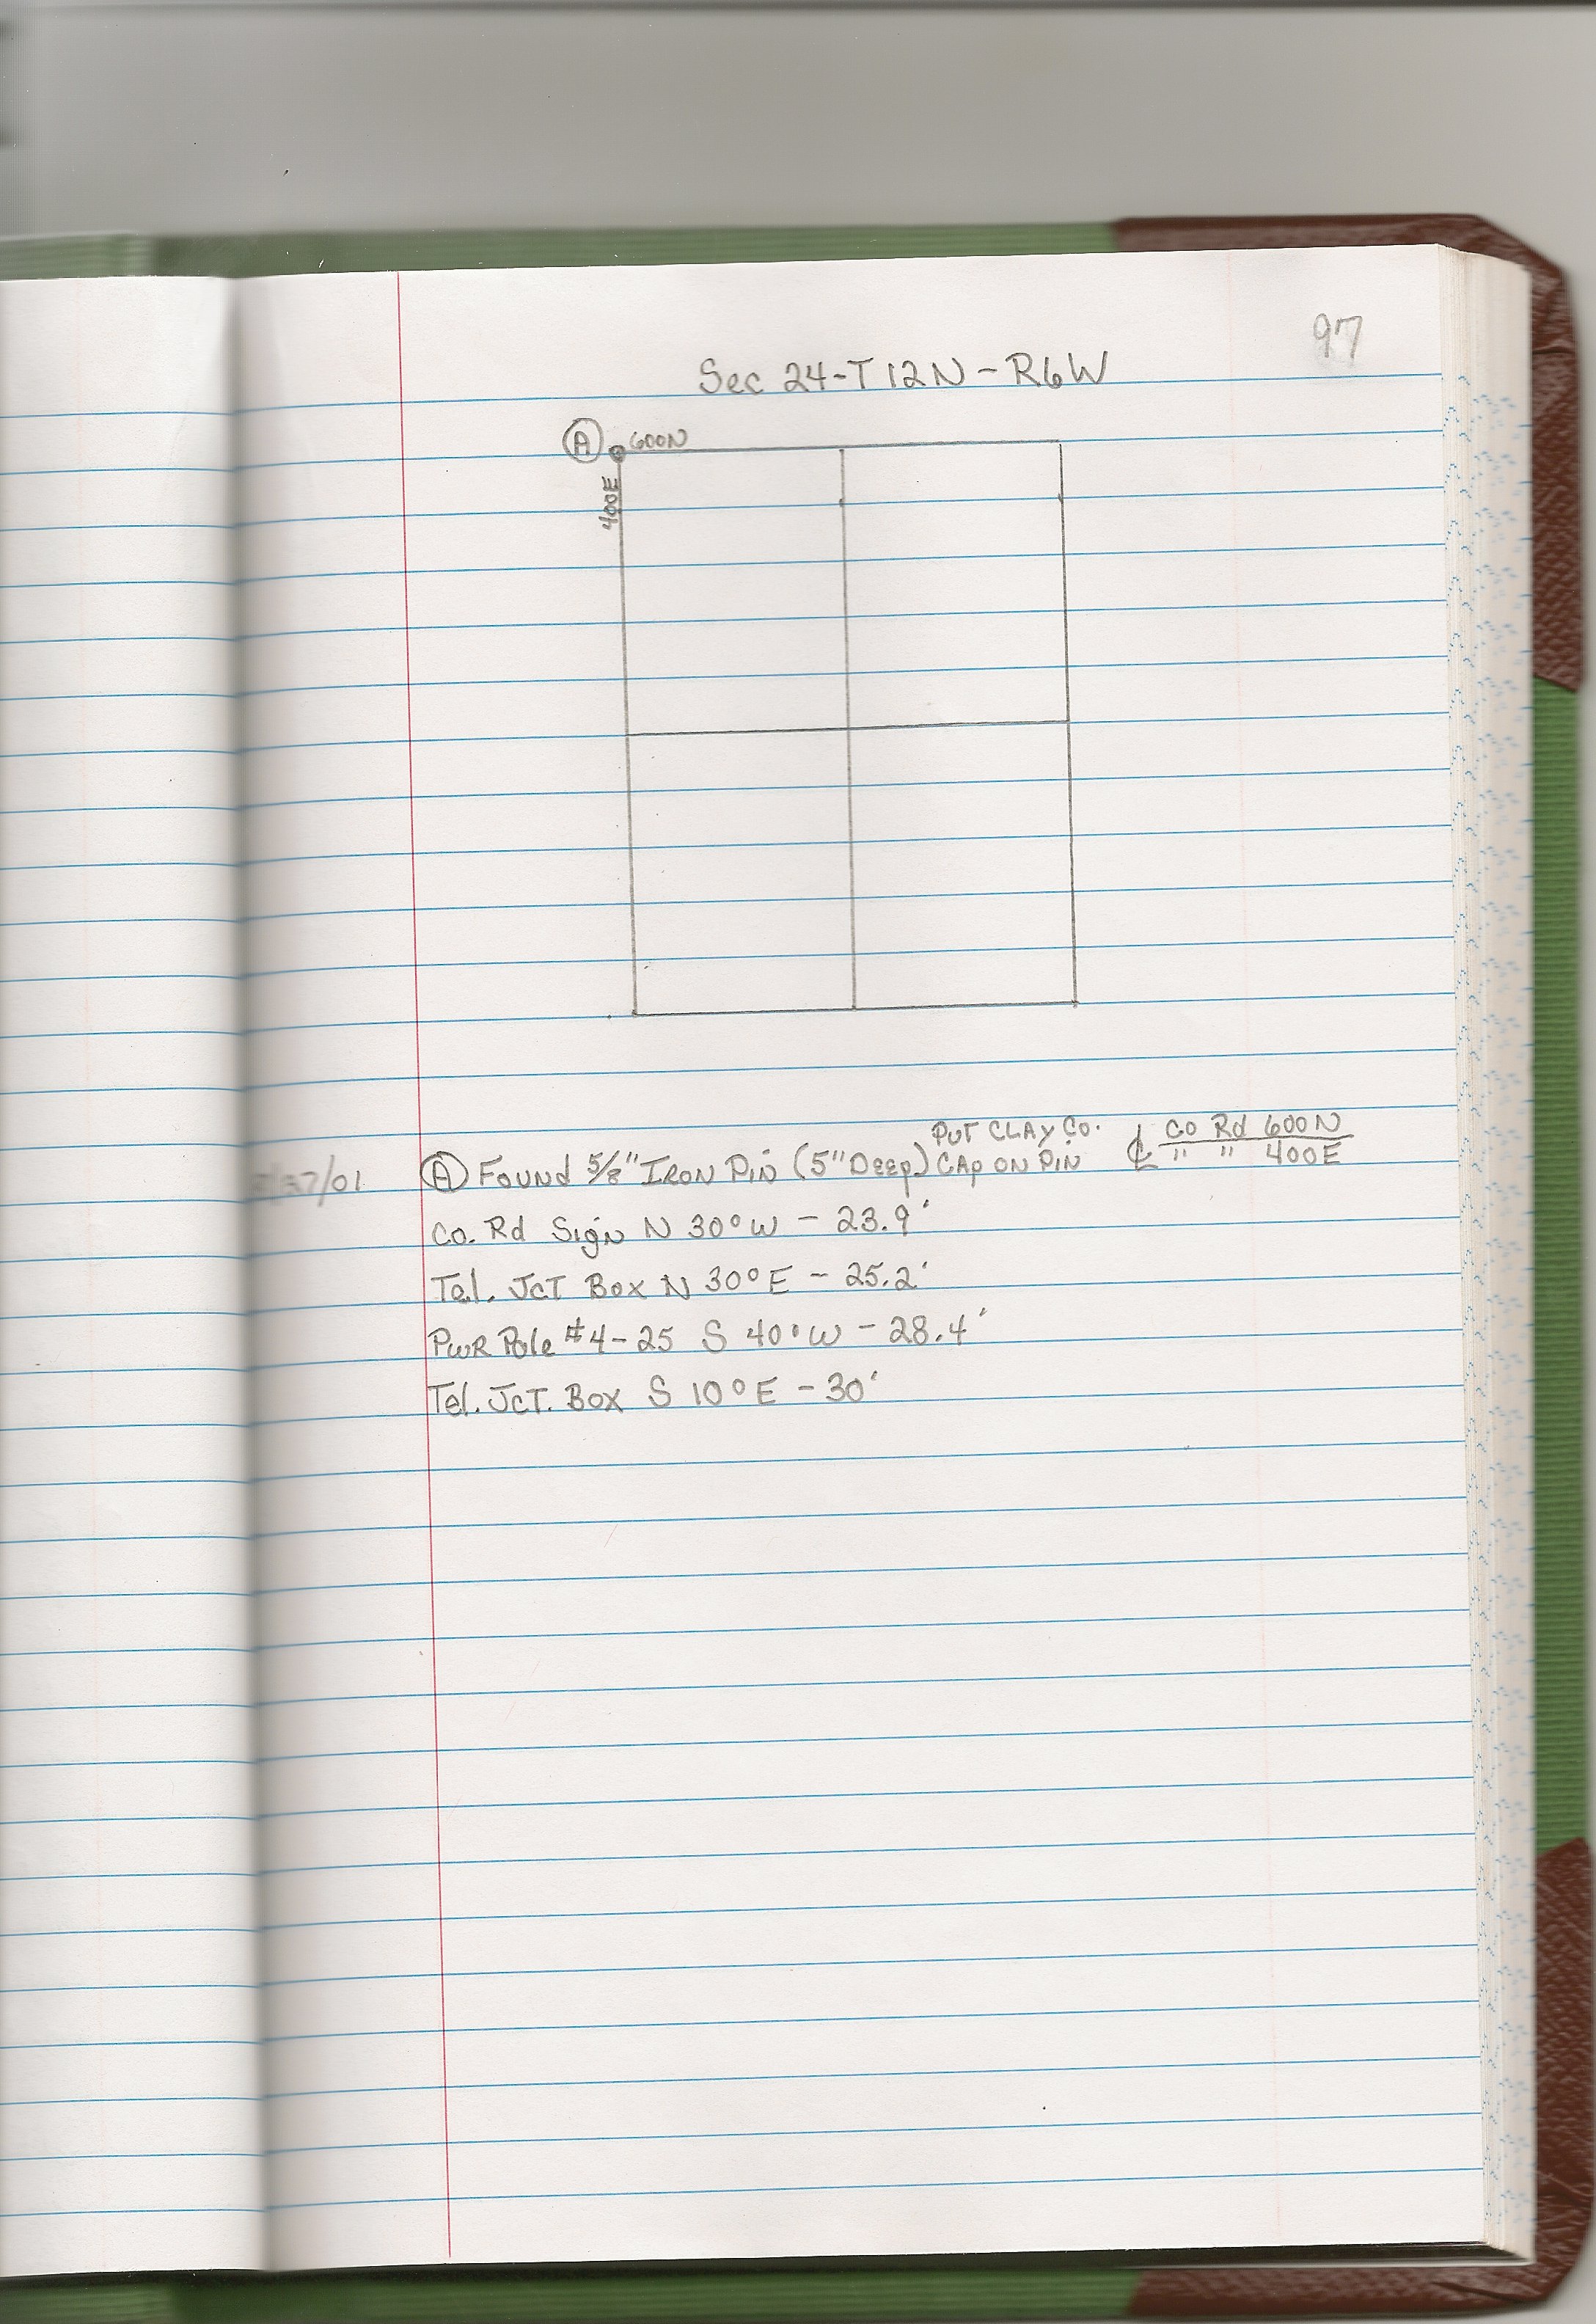 97
Sec 24-T12N-R6W
Ⓐ 600N
400E
PUT CLAY CO. ℄ CO Rd 600N
Ⓐ FOUND 5/8" IRON PIN (5" DEEP) CAP ON PIN " " 400E
CO. Rd Sign N 30° W - 23.9'
Tel. JCT Box N 30° E - 25.2'
PWR Pole #4-25 S 40° W - 28.4'
Tel. JCT. Box S 10° E - 30'